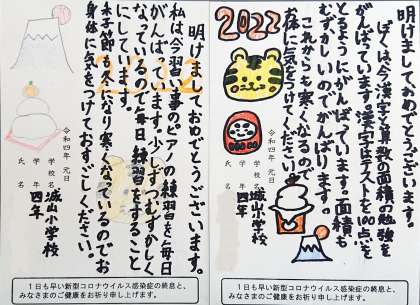 明けましておめでとうございます。
ぼくは今漢字と算数の面積の勉強を
がんばっています。漢字は字テストを100点を
とるようにがんばっています。面積も
むずかしいのでがんばります。
これからも寒くなるので
お体に気をつけてください。
2022
令和四年 元日
学校名 城山小学校
学年 四年
氏名
1日も早い新型コロナウイルス感染症の終息と、
みなさまのご健康をお祈り申し上げます。
明けましておめでとうございます。
私は今習い事のピアノの練習を毎日
がんばっています。少しずつむずかしく
なっているので毎日練習をすること
にしています。
季節も冬になり寒くなっているのでお
身体に気をつけておすごしください。
令和四年 元日
学校名 城山小学校
学年 四年
氏名
1日も早い新型コロナウイルス感染症の終息と、
みなさまのご健康をお祈り申し上げます。